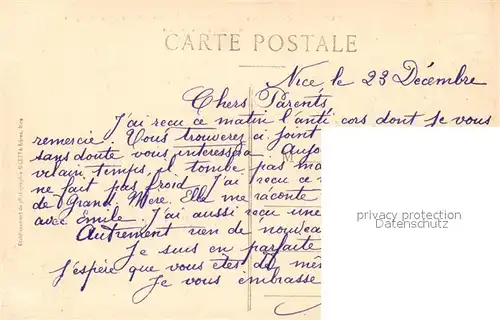 CARTE POSTALE
Nice le 23 Décembre
Chers Parents
J'ai reçu ce matin l'anti cors dont je vous
remercie. Vous trouverez ci joint
sans doute vous interessera. Aujo
vilain temps, il tombe pas ma
ne fait pas froid. J'ai reçu ce
de Grand Mère. Elle me raconte
avec Emile. J'ai aussi reçu une
Autrement rien de nouvea
Je suis en parfaite
J'espère que vous êtes de mê
Je vous embrasse
privacy protection
Datenschutz